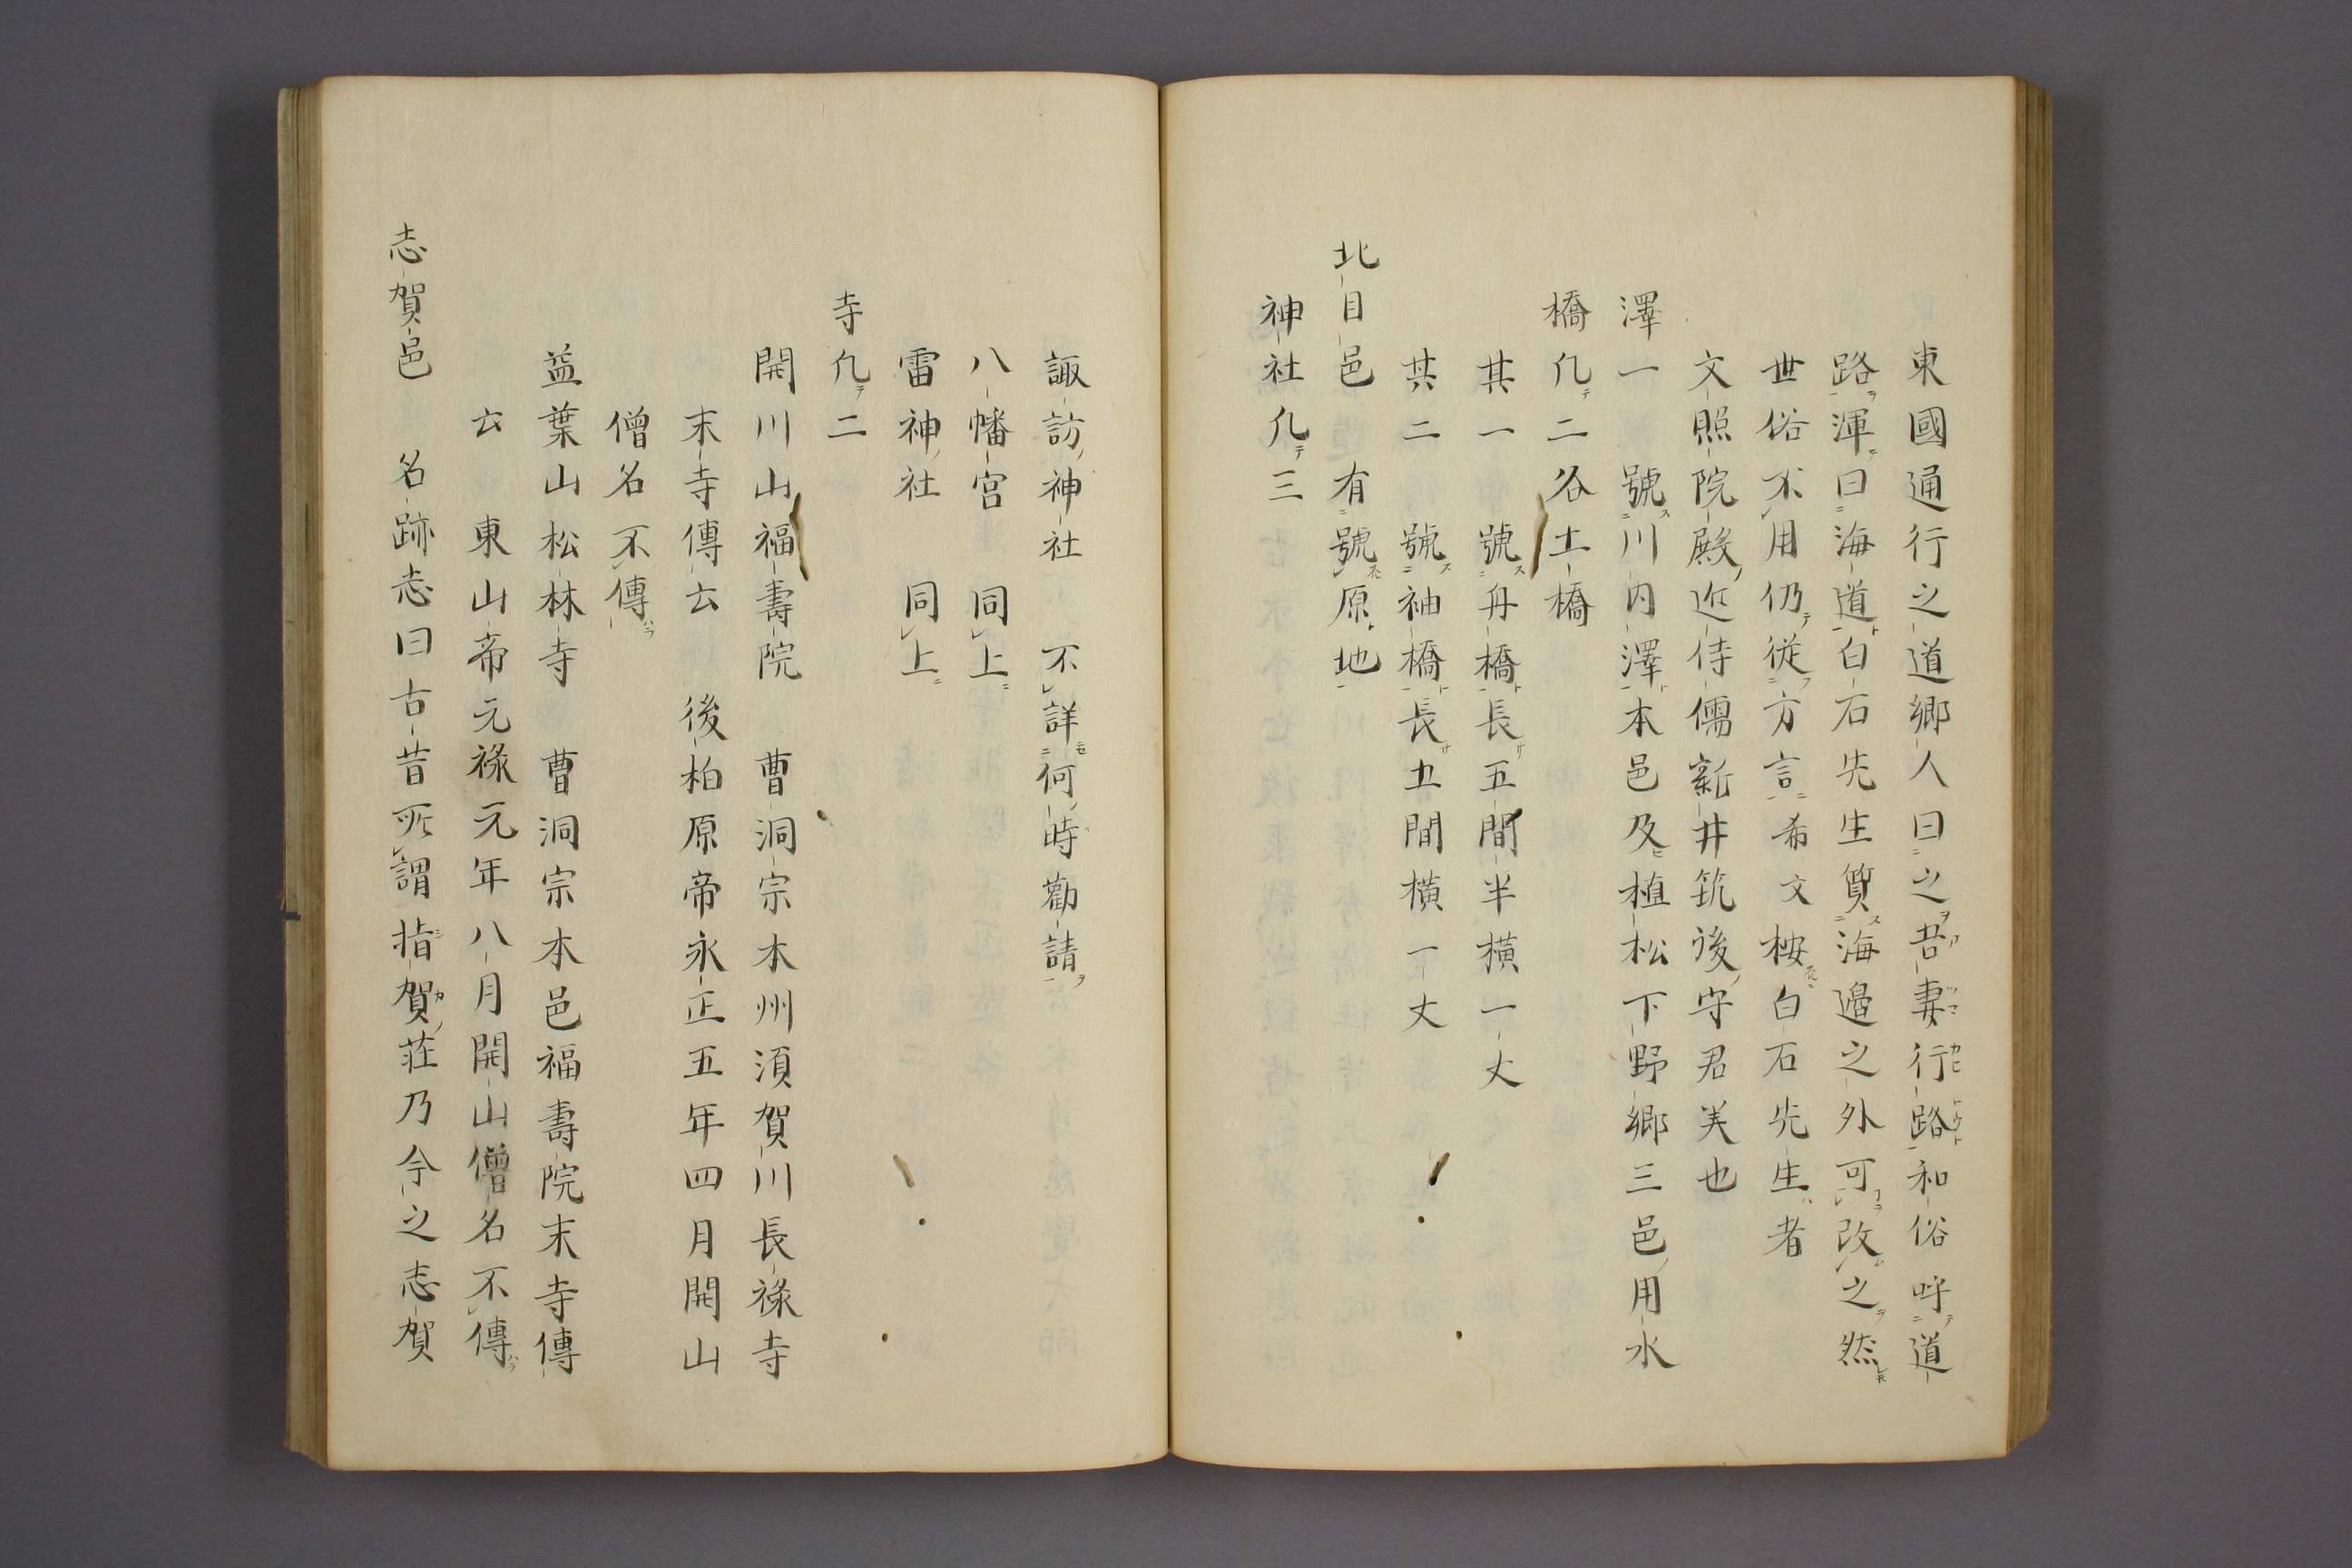 東國通行之道郷人曰之吾妻行路和俗呼道
路渾曰海道白石先生質海邉之外可改之然
世俗不用仍従方言希文桉白石先生者
文照院殿近侍儒新井筑後守君美也
澤一　號川内澤本邑及植松下野郷三邑用水
橋凡二谷土橋
其一　號舟橋長五間半横一丈
其二　號袖橋長五間横一丈
北目邑　有號原地
神社凡三
諏訪神社　不詳何時勸請
八幡宮　同上
雷神社　同上
寺凡二
開川山福壽院　曹洞宗本州須賀川長禄寺
末寺傳云　後柏原帝永正五年四月開山
僧名不傳
益葉山松林寺　曹洞宗本邑福壽院末寺傳
云　東山帝元禄元年八月開山僧名不傳
志賀邑　名跡志曰古昔所謂指賀莊乃今之志賀